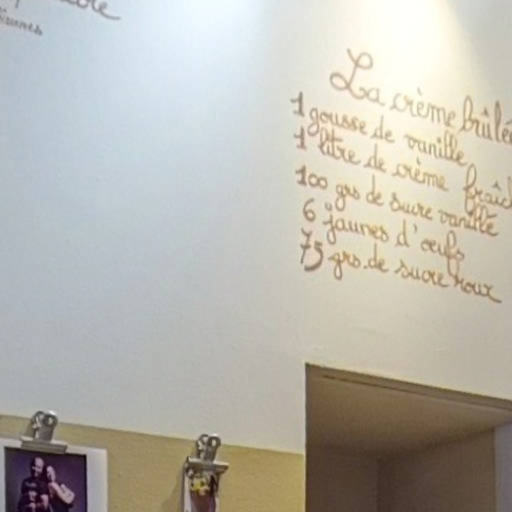 La crème brûlée
1 gousse de vanille
1 litre de crème fraîch
100 grs de sucre vanillé
6 jaunes d'œufs
75 grs.de sucre roux